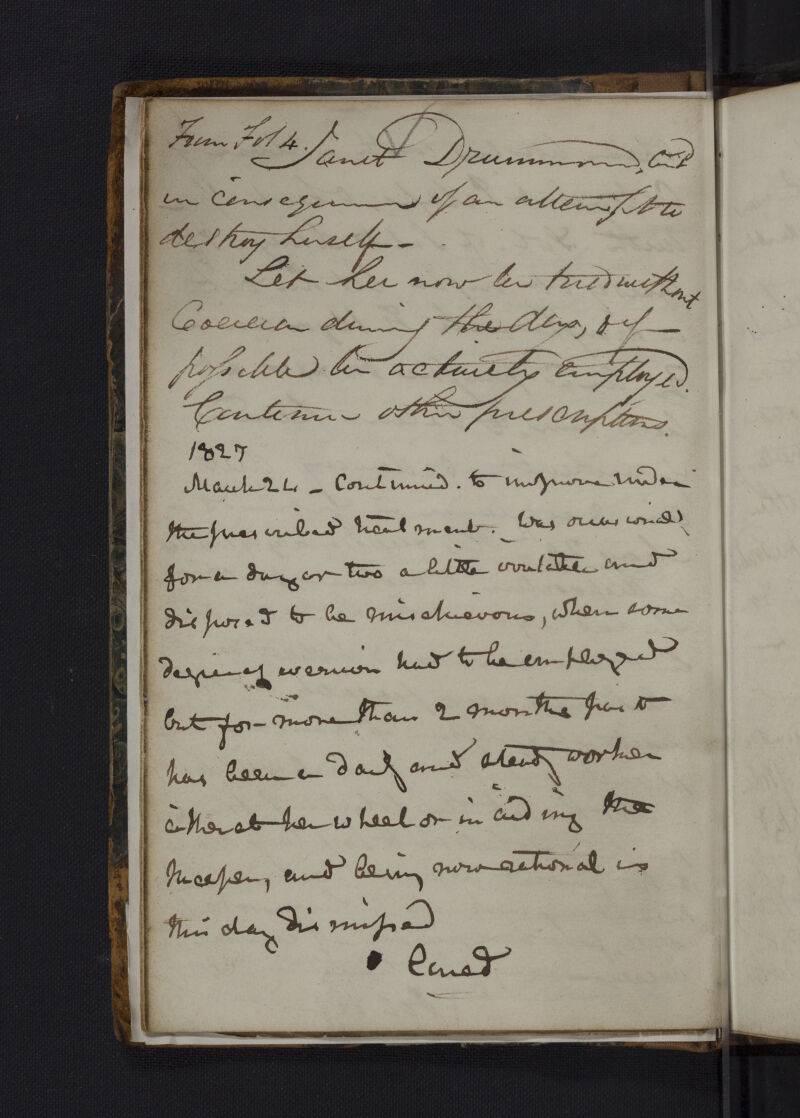 From Fol 4. Janet Drummond, and
in consequence of an attempt to
destroy herself -
Let her now be tried without
Coercion during the day, & if
possible be actively employed.
Continue other prescriptions.
1827
March 24 - Continued. to improve under
the prescribed treatment. Was occasionally
for a day or two a little and
disposed to be mischievous, when some
degree of coercion had to be employed
but for more than 2 months past
has been a daily and steady worker
either at her wheel or in aiding the
Keeper, and being now rational is
this day dismissed
Cured